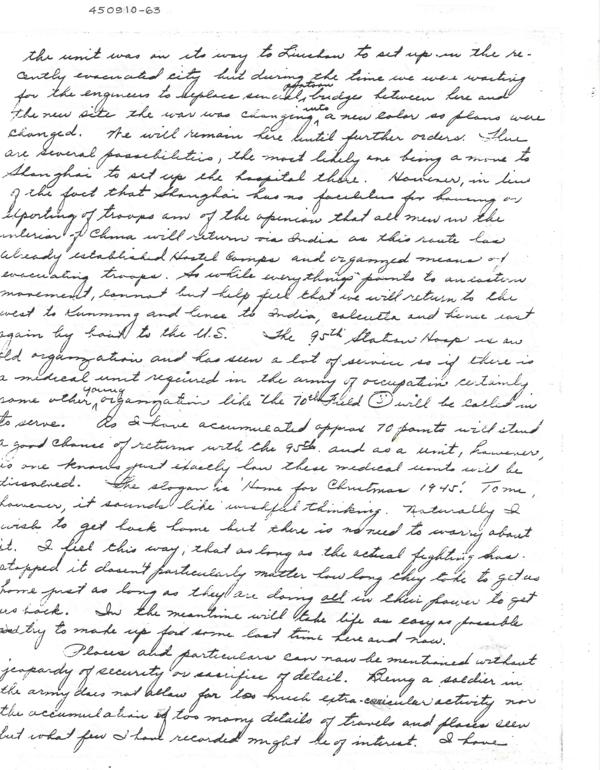 450910-63
the unit was on its way to Liuchow to set up in the re-
cently evacuated city but during the time we were waiting
for the engineers to replace several pontoon bridges between here and
the new site the war was changing into a new color so plans were
changed. We will remain here until further orders. There
are several possibilities, the most likely one being a move to
Shanghai to set up the hospital there. However, in lieu
of the fact that Shanghai has no facilities for housing or
deporting of troops am of the opinion that all men in the
interior of China will return via India as this route has
already established Hostel Camps and organized means of
evacuating troops. So while everything points to an eastern
movement, cannot but help feel that we will return to the
west to Kunming and hence to India, Calcutta and hence east
again by boat to the U.S. The 95th Station Hosp is an
old organization and has seen a lot of service so if there is
a medical unit required in the army of occupation certainly
some other young organization like the 70th Field will be called in
to serve. As I have accumulated approx 70 points will stand
a good chance of returns with the 95th and as a unit, however,
no one knows just exactly how these medical units will be
dissolved. The slogan is 'Home for Christmas 1945'. To me,
however, it sounds like wishful thinking. Naturally I
wish to get back home but there is no need to worry about
it. I feel this way, that as long as the actual fighting has
stopped it doesn't particularly matter how long they take to get us
home just as long as they are doing all in their power to get
us back. In the meantime will take life as easy as possible
and try to make up for some lost time here and now.
Places and particulars can now be mentioned without
jeopardy of security or sacrifice of detail. Being a soldier in
the army does not allow for too much extra-curicular activity nor
the accumulation of too many details of travels and places seen
but what few I have recorded might be of interest. I have